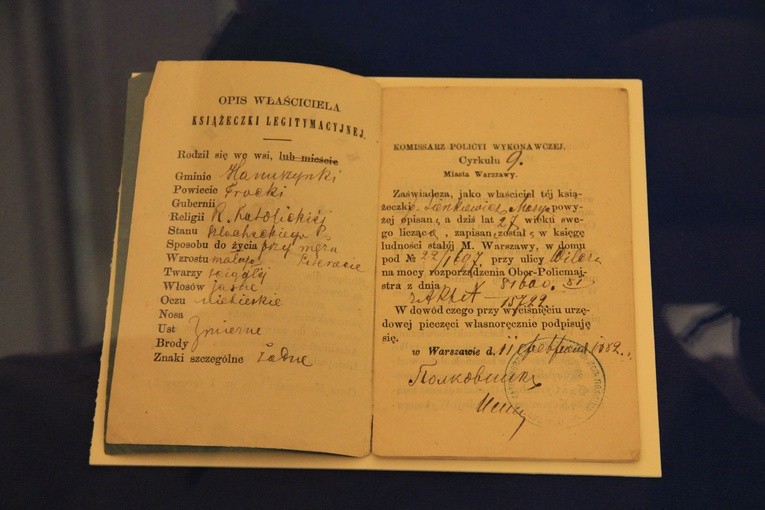 OPIS WŁAŚCICIELA
KSIĄŻECZKI LEGITYMACYJNEJ.
Rodził się we wsi, lub mieście
Gminie Hanuszynki
Powiecie Trocki
Gubernii
Religii R. Katolickiej
Stanu szlacheckiego
Sposobu do życia przy mężu
Literacie
Wzrostu małego
Twarzy ściągłej
Włosów jasne
Oczu niebieskie
Nosa
Ust Zmierne
Brody
Znaki szczególne Żadne
KOMISSARZ POLICYI WYKONAWCZEJ.
Cyrkułu 9.
Miasta Warszawy.
Zaświadcza, jako właściciel téj ksią-
żeczki Sienkiewicz powy-
żej opisana a dziś lat 27 wieku swe-
go licząca, zapisaną została w księgę
ludności stałéj M. Warszawy, w domu
pod № 22/1607 przy ulicy
na mocy rozporządzenia Ober-Policmaj-
stra z dnia
15722
W dowód czego przy wyciśnięciu urzę-
dowej pieczęci własnoręcznie podpisuję
się.
w Warszawie d. 11 1882